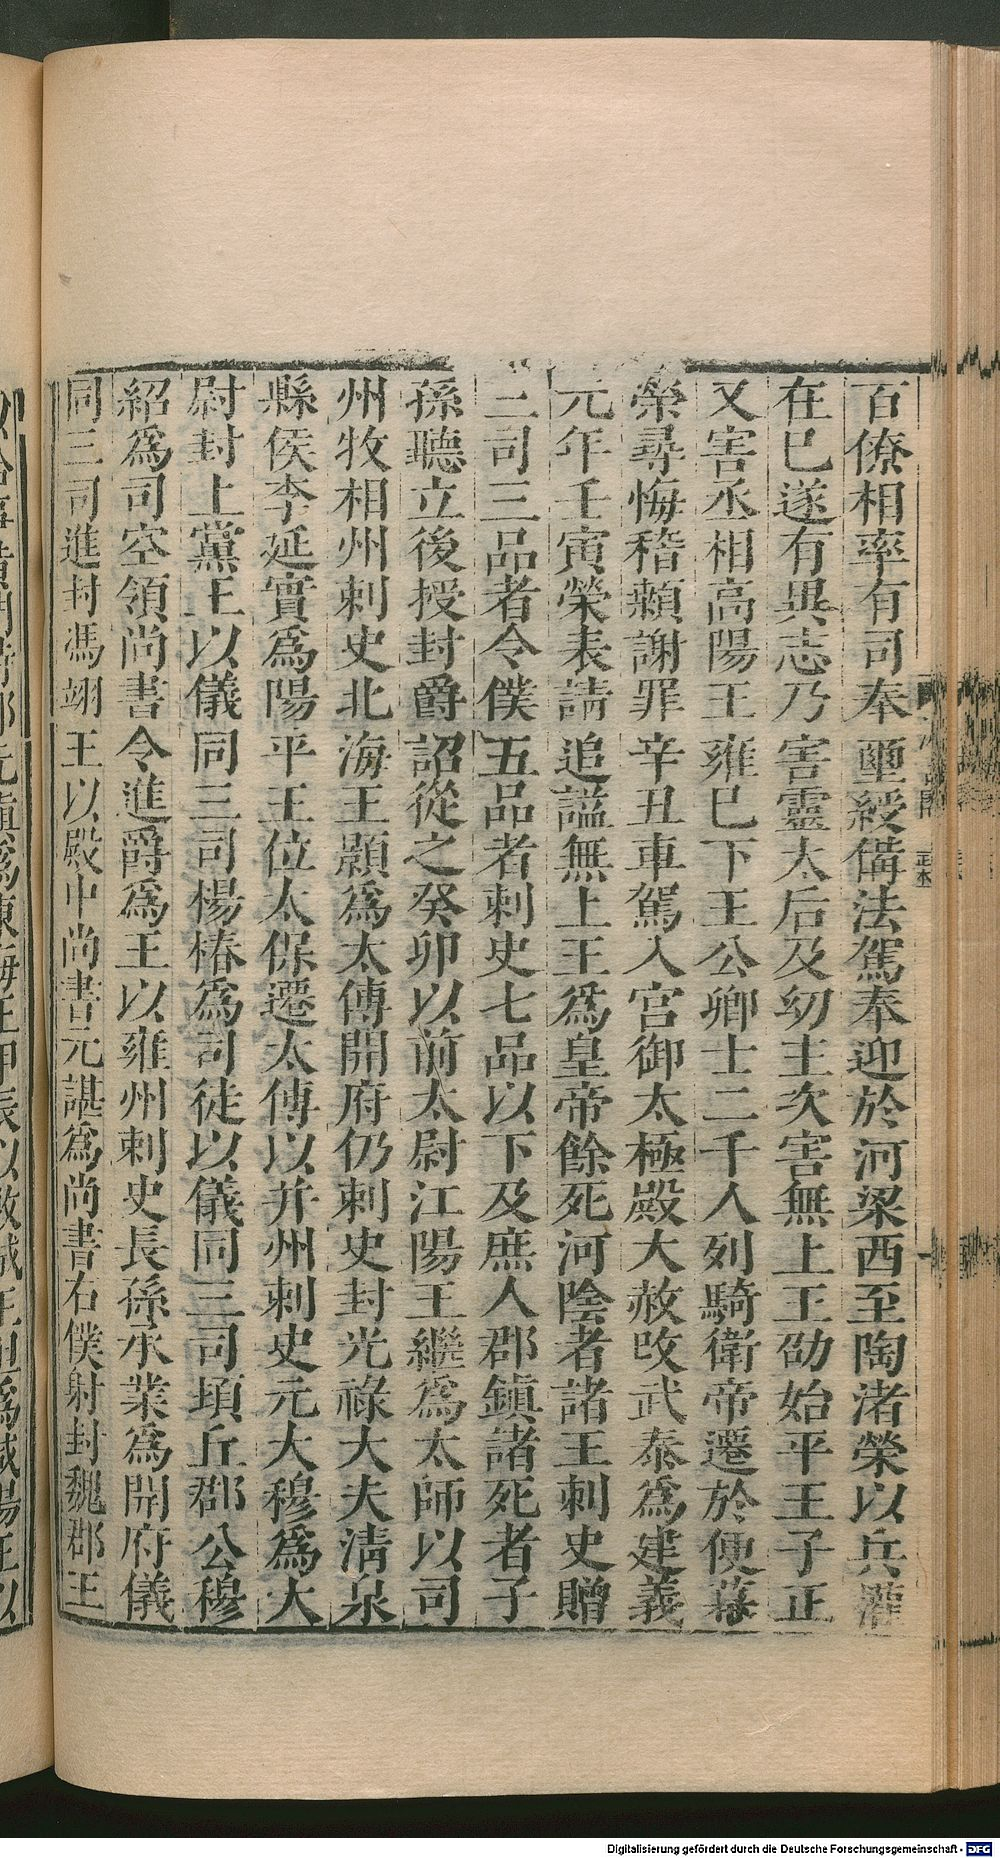 百僚相率有司奉璽綬備法駕奉迎於河梁西至陶渚榮以兵權
在已遂有異志乃害靈太后及幼主次害無上王劭始平王子正
又害丞相高陽王雍已下王公卿士二千人列騎衛帝遷於便幕
榮尋悔稽顙謝罪辛丑車駕入宮御太極殿大赦改武泰爲建義
元年壬寅榮表請追謚無上王爲皇帝餘死河陰者諸王刺史贈
三司三品者令僕五品者刺史七品以下及庶人郡鎮諸死者子
孫聽立後授封爵詔從之癸卯以前太尉江陽王繼爲太師以司
州牧相州刺史北海王顥爲太傅開府仍刺史封光祿大夫清泉
縣侯李延實爲陽平王位太保遷太傅以并州刺史元大穆爲大
尉封上黨王以儀同三司楊椿爲司徒以儀同三司頊丘郡公穆
紹爲司空領尚書令進爵爲王以雍州刺史長孫承業爲開府儀
同三司進封馮翊王以殿中尚書元諶爲尚書右僕射封魏郡王
Digitalisierung gefördert durch die Deutsche Forschungsgemeinschaft - DFG